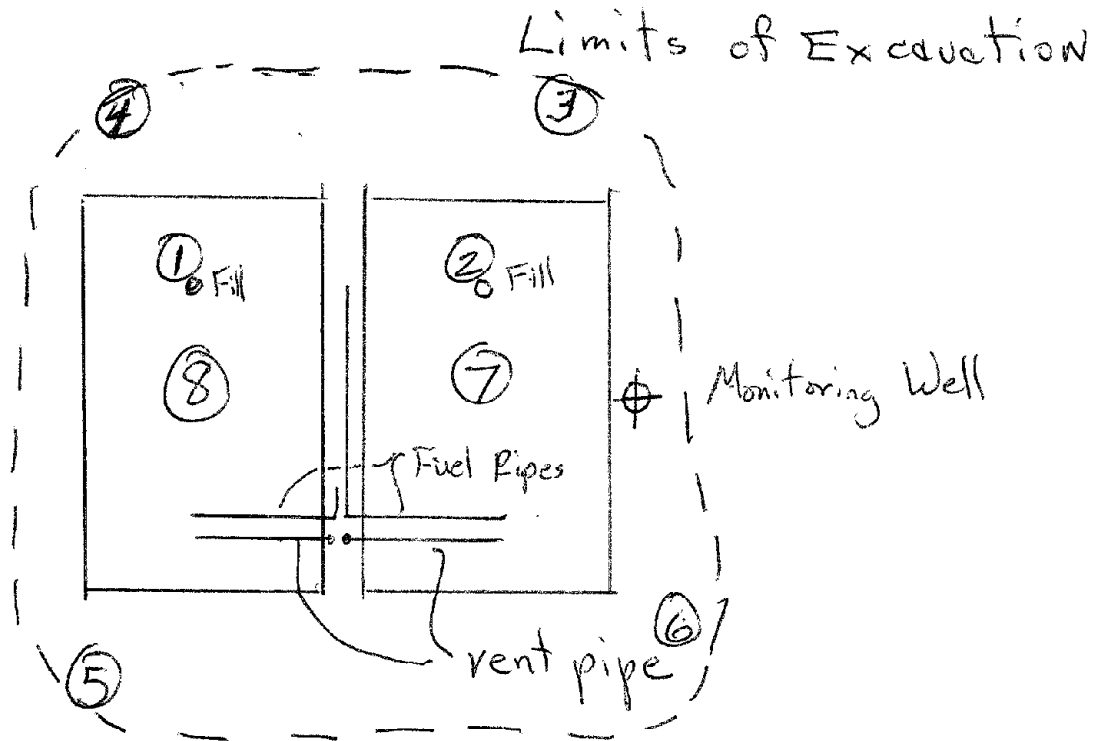 Limits of Excavation
4
3
1
Fill
2
Fill
8
7
Monitoring Well
Fuel Pipes
6
vent pipe
5